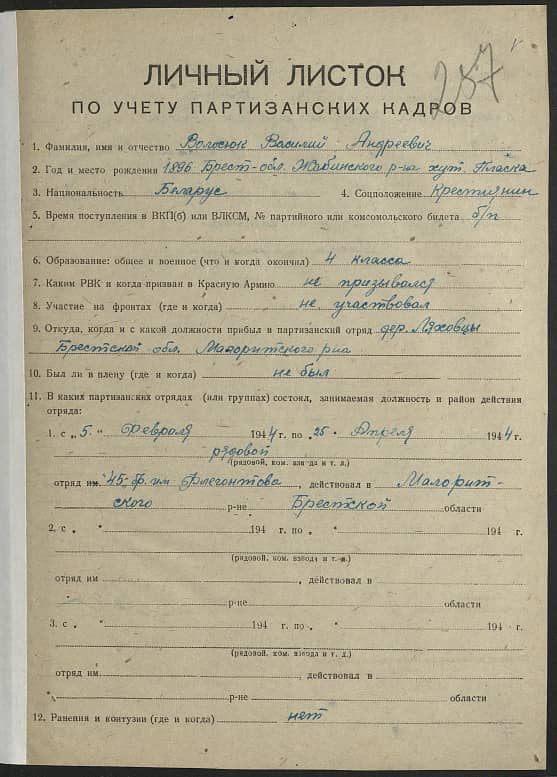 287
ЛИЧНЫЙ ЛИСТОК
ПО УЧЕТУ ПАРТИЗАНСКИХ КАДРОВ
1. Фамилия, имя и отчество Волосюк Василий Андреевич
2. Год и место рождения 1896 Брест-обл. Жабинского р-на хут. Пласка
3. Национальность Беларус 4. Соцположение Крестиянин
5. Время поступления в ВКП(б) или ВЛКСМ, № партийного или комсомольского билета б/п
6. Образование: общее и военное (что и когда окончил) 4 класса
7. Каким РВК и когда призван в Красную Армию не призывался
8. Участие на фронтах (где и когда) не участвовал
9. Откуда, когда и с какой должности прибыл в партизанский отряд дер. Ляховцы
Брестской обл. Малоритского р-на
10. Был ли в плену (где и когда) не был
11. В каких партизанских отрядах (или группах) состоял, занимаемая должность и район действия
отряда:
1. с „5“ Февраля 1944 г. по „25“ Апреля 1944 г.
рядовой
(рядовой, ком. взвода и т. д.)
отряд им. 45-бр. им Флегонтова, действовал в Малорит-
ского р-не Брестской области
2. с „ “ 194 г. по „ “ 194 г.
(рядовой, ком. взвода и т. д.)
отряд им , действовал в
р-не области
3. с „ “ 194 г. по „ “ 194 г.
(рядовой, ком. взвода и т. д.)
отряд им. , действовал в
р-не области
12. Ранения и контузии (где и когда) нет